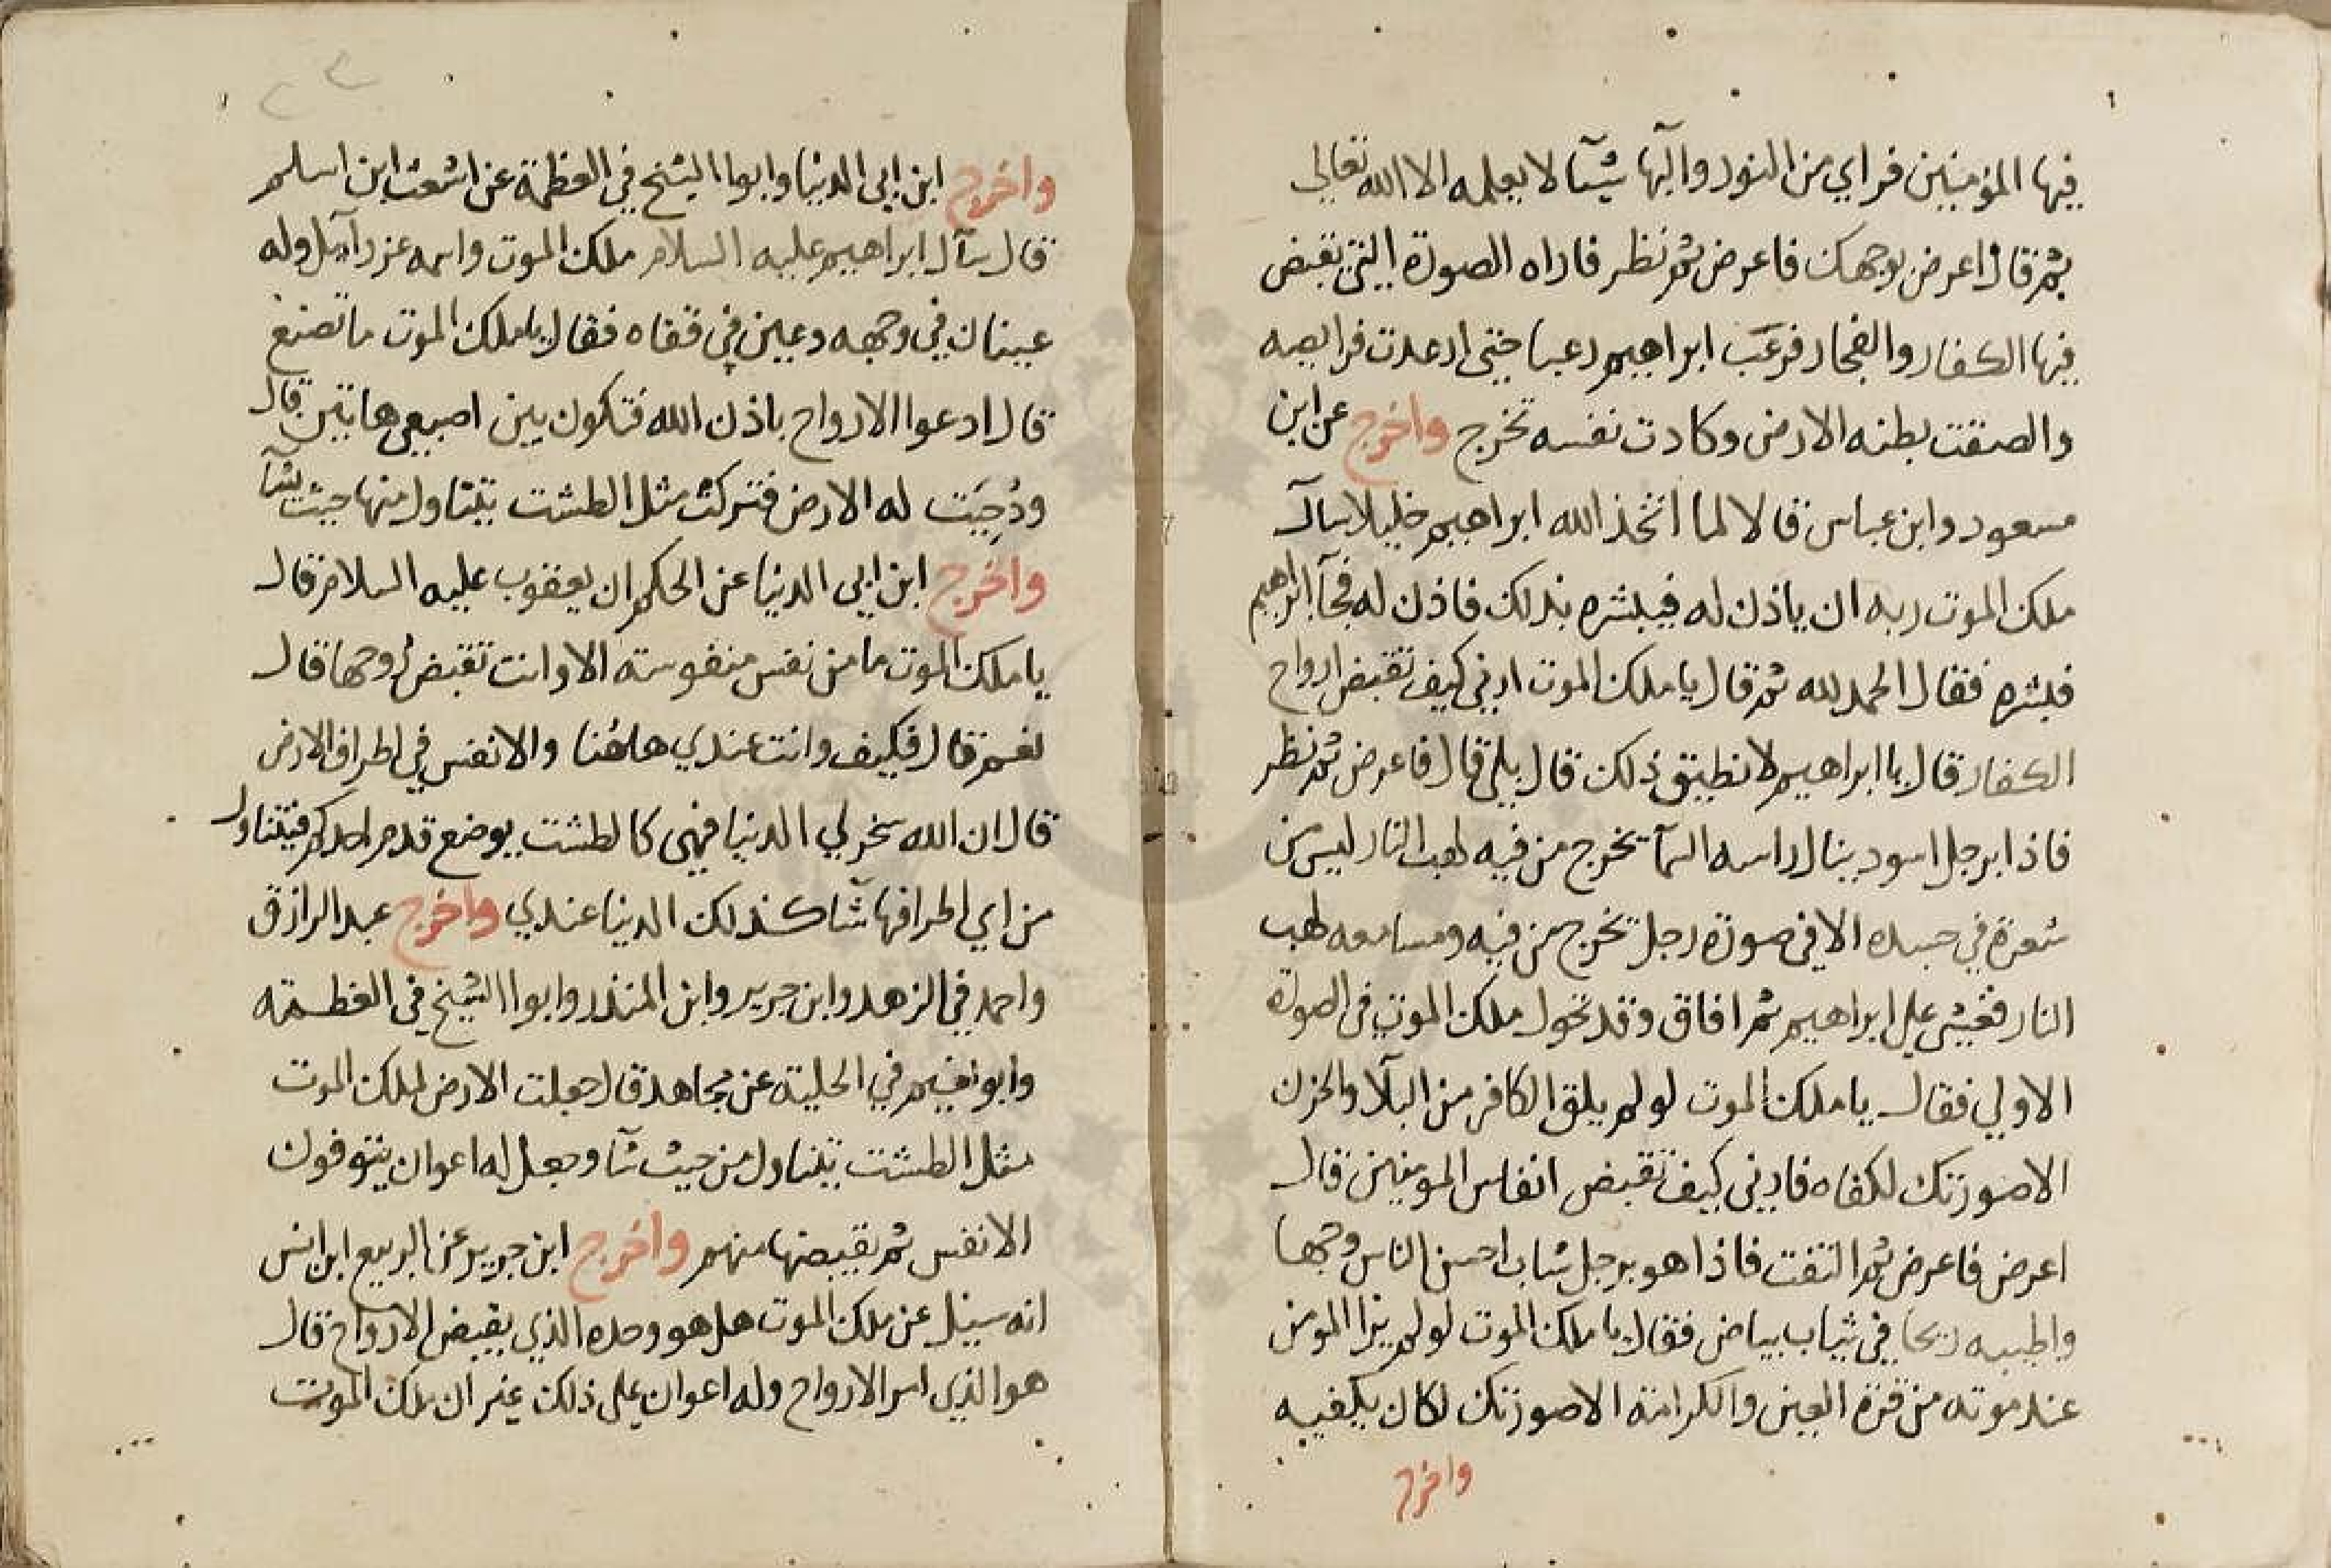 فيها المؤمنين فراي من النور والبها شيئا لا يعلمه الا الله تعالى
ثم قال اعرض بوجهك فاعرض ثم نظر فاراه الصورة التي تقبض
فيها الكفار والفجار فرعب ابراهيم رعبا حتى ارعدت فرايصه
والصقت بطنه الارض وكادت نفسه تخرج واخرج عن ابن
مسعود وابن عباس قالا لما اتخذ الله ابراهيم خليلا سال
ملك الموت ربه ان ياذن له فيبشره بذلك فاذن له فجآ ابراهيم
فبشره فقال الحمد لله ثم قال يا ملك الموت ارني كيف تقبض ارواح
الكفار قال يا ابراهيم لا تطيق ذلك قال بلى قال فاعرض ثم نظر
فاذا برجل اسود ينال راسه السمآ تخرج من فيه لهب النار ليس من
شعرة في جسده الا في صورة رجل تخرج من فيه ومسامعه لهب
النار فغشي على ابراهيم ثم افاق وقد تحول ملك الموت في الصورة
الاولي فقال يا ملك الموت لو لم يلق الكافر من البلآ والحزن
الا صورتك لكفاه فارني كيف تقبض انفاس المومنين قال
اعرض فاعرض ثم التفت فاذا هو برجل شاب احسن الناس وجها
واطيبه ريحا في ثياب بياض فقال يا ملك الموت لو لم يرا المومن
عند موته من قرة العين والكرامة الا صورتك لكان يكفيه
واخرج
واخرج ابن ابي الدنيا وابوا الشيخ في العظمة عن اشعث ابن اسلم
قال سآل ابراهيم عليه السلام ملك الموت واسمه عزرآئيل وله
عينان في وجهه وعين في قفاه فقال يا ملك الموت ما تصنع
قال ادعوا الارواح باذن الله فتكون بين اصبعي هاتين قال
ودُحِيَت له الارض فتركت مثل الطشت يتناول منها حيث يشآ
واخرج ابن ابي الدنيا عن الحكم ان يعقوب عليه السلام قال
يا ملك الموت ما من نفس منفوسة الا وانت تقبض روحها قال
نعم قال فكيف وانت عندي هاهُنا والانفس في اطراف الارض
قال ان الله سخر لي الدنيا فهى كالطشت يوضع قدم احدكم فيتناول
من اي اطرافها شآ كذلك الدنيا عندي واخرج عبد الرازق
واحمد في الزهد وابن جرير وابن المنذر وابوا الشيخ في العظمة
وابو نعيم في الحلية عن مجاهد قال جعلت الارض لملك الموت
مثل الطشت يتناول من حيث شآ وجعل له اعوان يتوفون
الانفس ثم يقبضها منهم واخرج ابن جرير عن الربيع ابن انس
انه سيل عن ملك الموت هل هو وحده الذي يقبض الارواح قال
هو الذي امر الارواح وله اعوان على ذلك غير ان ملك الموت